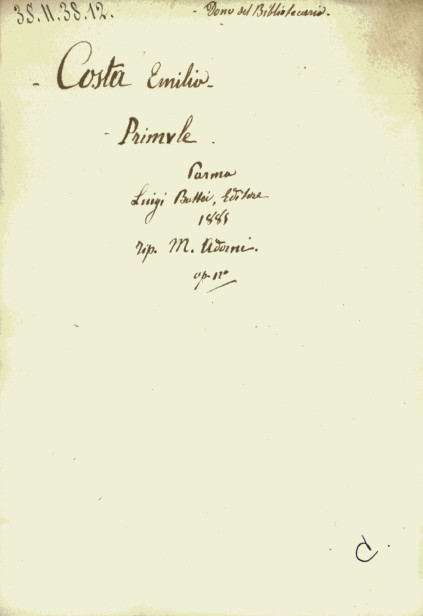 35.II.38.12.
- Dono del Bibliotecario.
- Costa Emilio -
- Primule.
Parma
Luigi Battei, Editore
1885
Tip. M. Adorni.
op. in 8°
C.